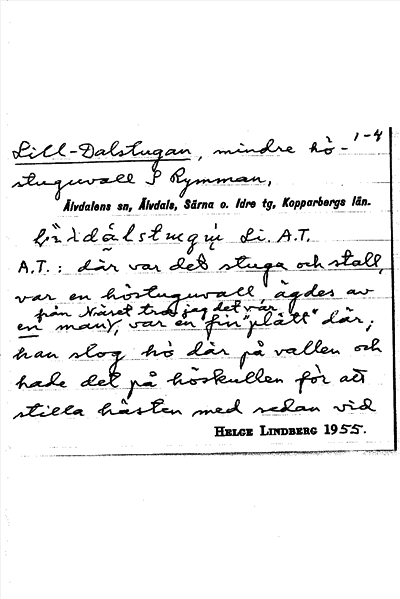 1-4
Lill-Dalstugan, mindre hö-
stuguvall S Rymman,
Älvdalens sn, Älvdals, Särna o. Idre tg, Kopparbergs län.
Li. A.T.
A.T.: där var det stuga och stall,
var en höstuguvall, ägdes av
från Näset tror jag det var
en man, var en fin "plätt" där;
han slog hö där på vallen och
hade det på höskullen för att
stilla hästen med sedan vid
HELGE LINDBERG 1955.